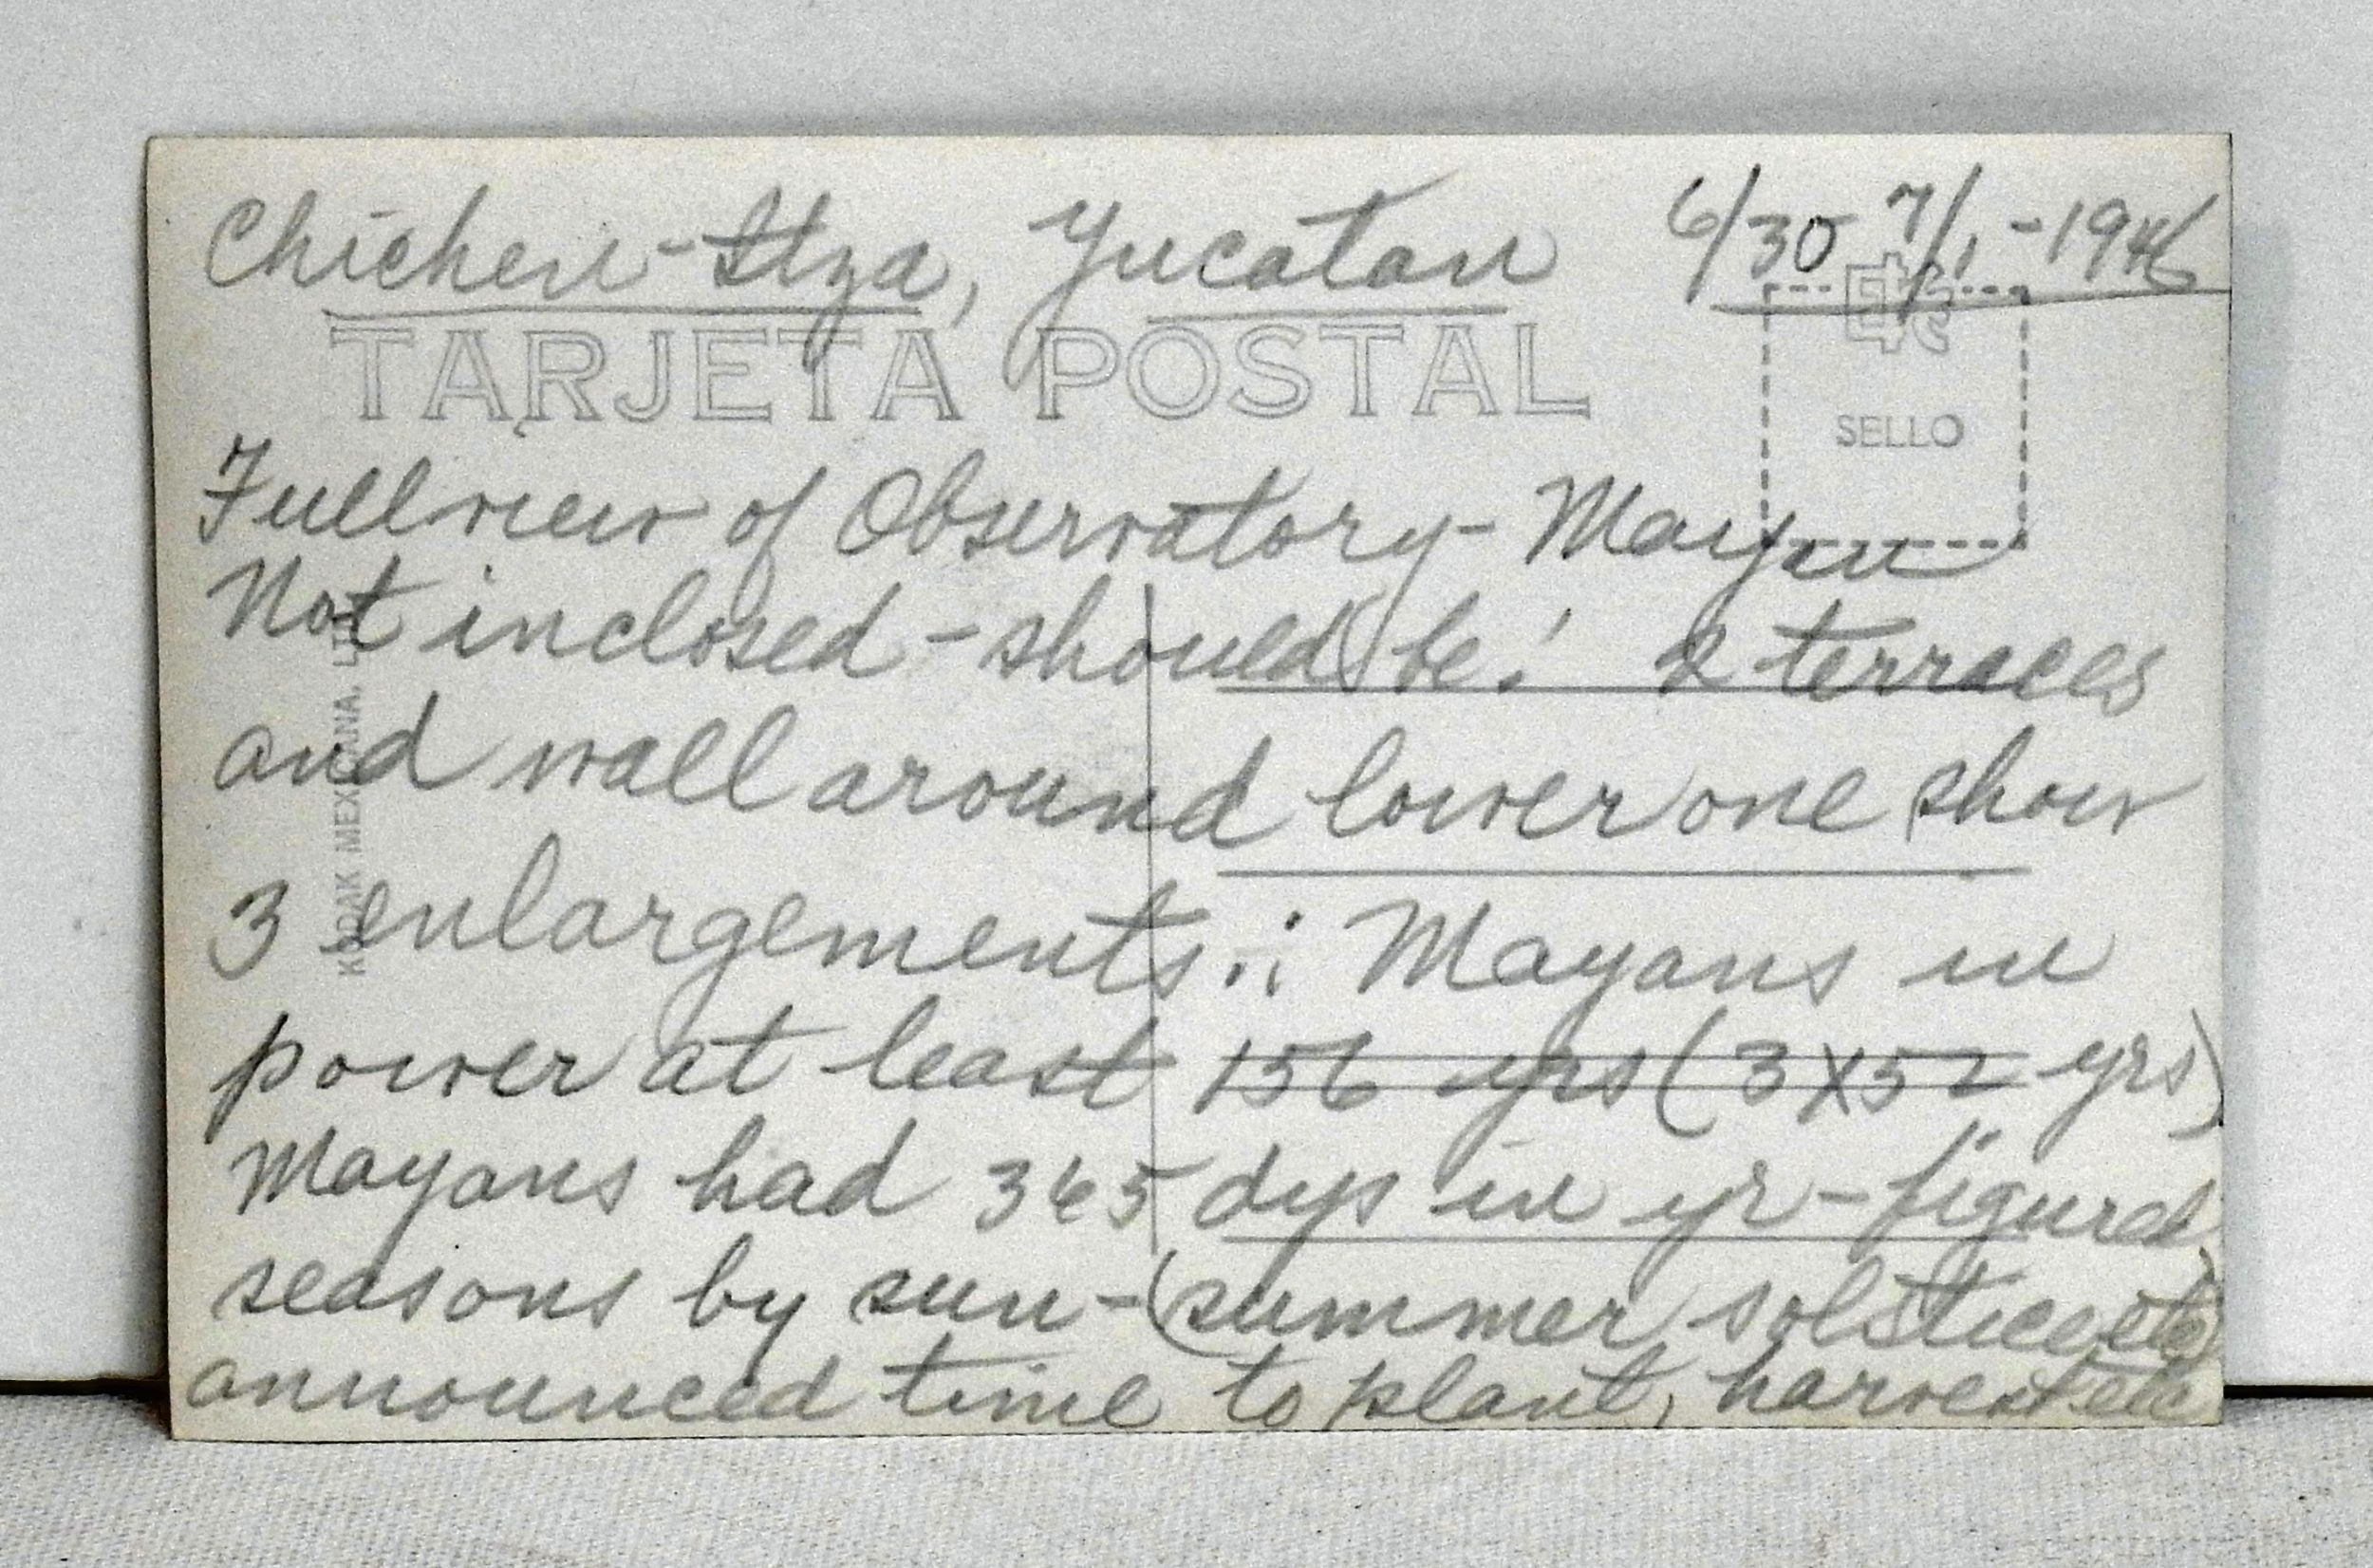 Chichen-Itza, Yucatan 6/30 7/1-1946
TARJETA POSTAL
EKC
SELLO
Full view of Observatory- Mayan
Not inclosed - should be! 2 terraces
and wall around lower one show
3 enlargements ∴ Mayans in
power at least 156 yrs (3x52 yrs)
Mayans had 365 dys in yr - figured
seasons by sun-(summer solstice etc)
announced time to plant, harvest etc
KODAK MEXICANA, LTD